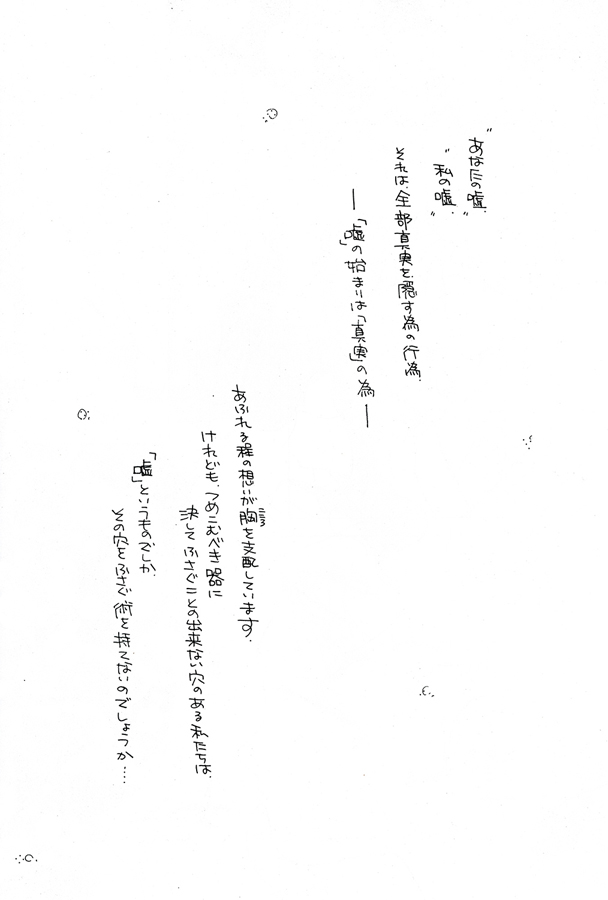 "あなたの嘘、
"私の嘘、"
それは、全部真実を、隠す為の行為、
―「嘘」の始まりは、「真実」の為―
あふれる程の想いが胸を支配しています。
けれども、つめこむべき器に
決してふさぐことの出来ない穴のある私たちは、
「嘘」というものでしか、
その穴をふさぐ術を持てないのでしょうか…